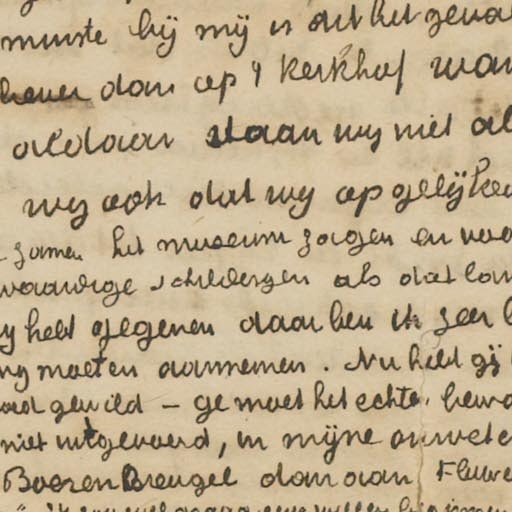 minste bij mij is dit het geval
liever dan op 't kerkhof wan
aldaar staan wij niet al
wij ook dat wij op gelijke
zamen het museum zagen en voo
waardige schilderijen als dat lan
y hebt gegeven daar ben ik zeer
moeten aannemen. Nu hebt gij
gewild – ge moet het echte bewa
niet uitgevoerd, in mijne onwete
Boeren Breugel dan aan Fluwe